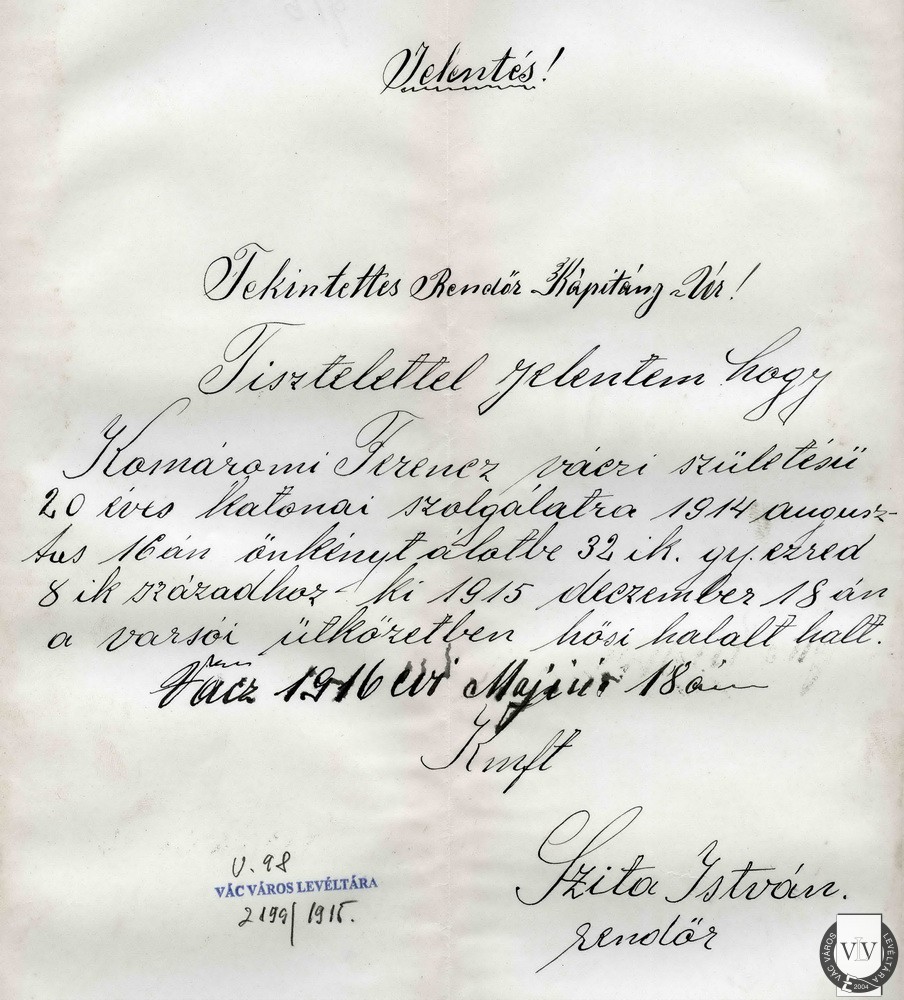 Jelentés!
Tekintettes Rendőr Kápitány Úr!
Tisztelettel jelentem hogy
Komáromi Ferencz váczi születésü
20 éves katonai szolgálatra 1914 augusz-
tus 16án önkényt álotbe 32 ik. gy. ezred
8 ik századhoz - ki 1915 deczember 18 án
a varsói ütközetben hösi halalt halt.
Vácz 1916 evi Majius 18án
Kmft
Szita István.
rendőr
V. 98
VÁC VÁROS LEVÉLTÁRA
2199/1915.
VÁC VÁROS LEVÉLTÁRA
VLV
2004